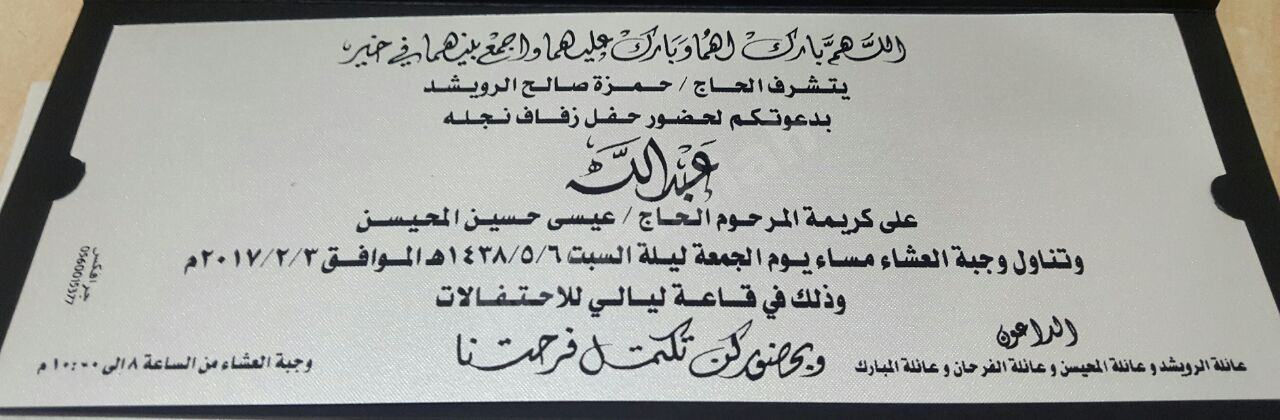 اللهم بارك لهما وبارك عليهما واجمع بينهما في خير
يتشرف الحاج / حمزة صالح الرويشد
بدعوتكم لحضور حفل زفاف نجله
عبدالله
على كريمة المرحوم الحاج / عيسى حسين المحيسن
وتناول وجبة العشاء مساء يوم الجمعة ليلة السبت ١٤٣٨/٥/٦هـ الموافق ٢٠١٧/٢/٣م
وذلك في قاعة ليالي للاحتفالات
الداعون
عائلة الرويشد و عائلة المحيسن و عائلة الفرحان و عائلة المبارك
وبحضوركن تكتمل فرحتنا
وجبة العشاء من الساعة ٨ الى ١٠:٠٠ م
0560015377